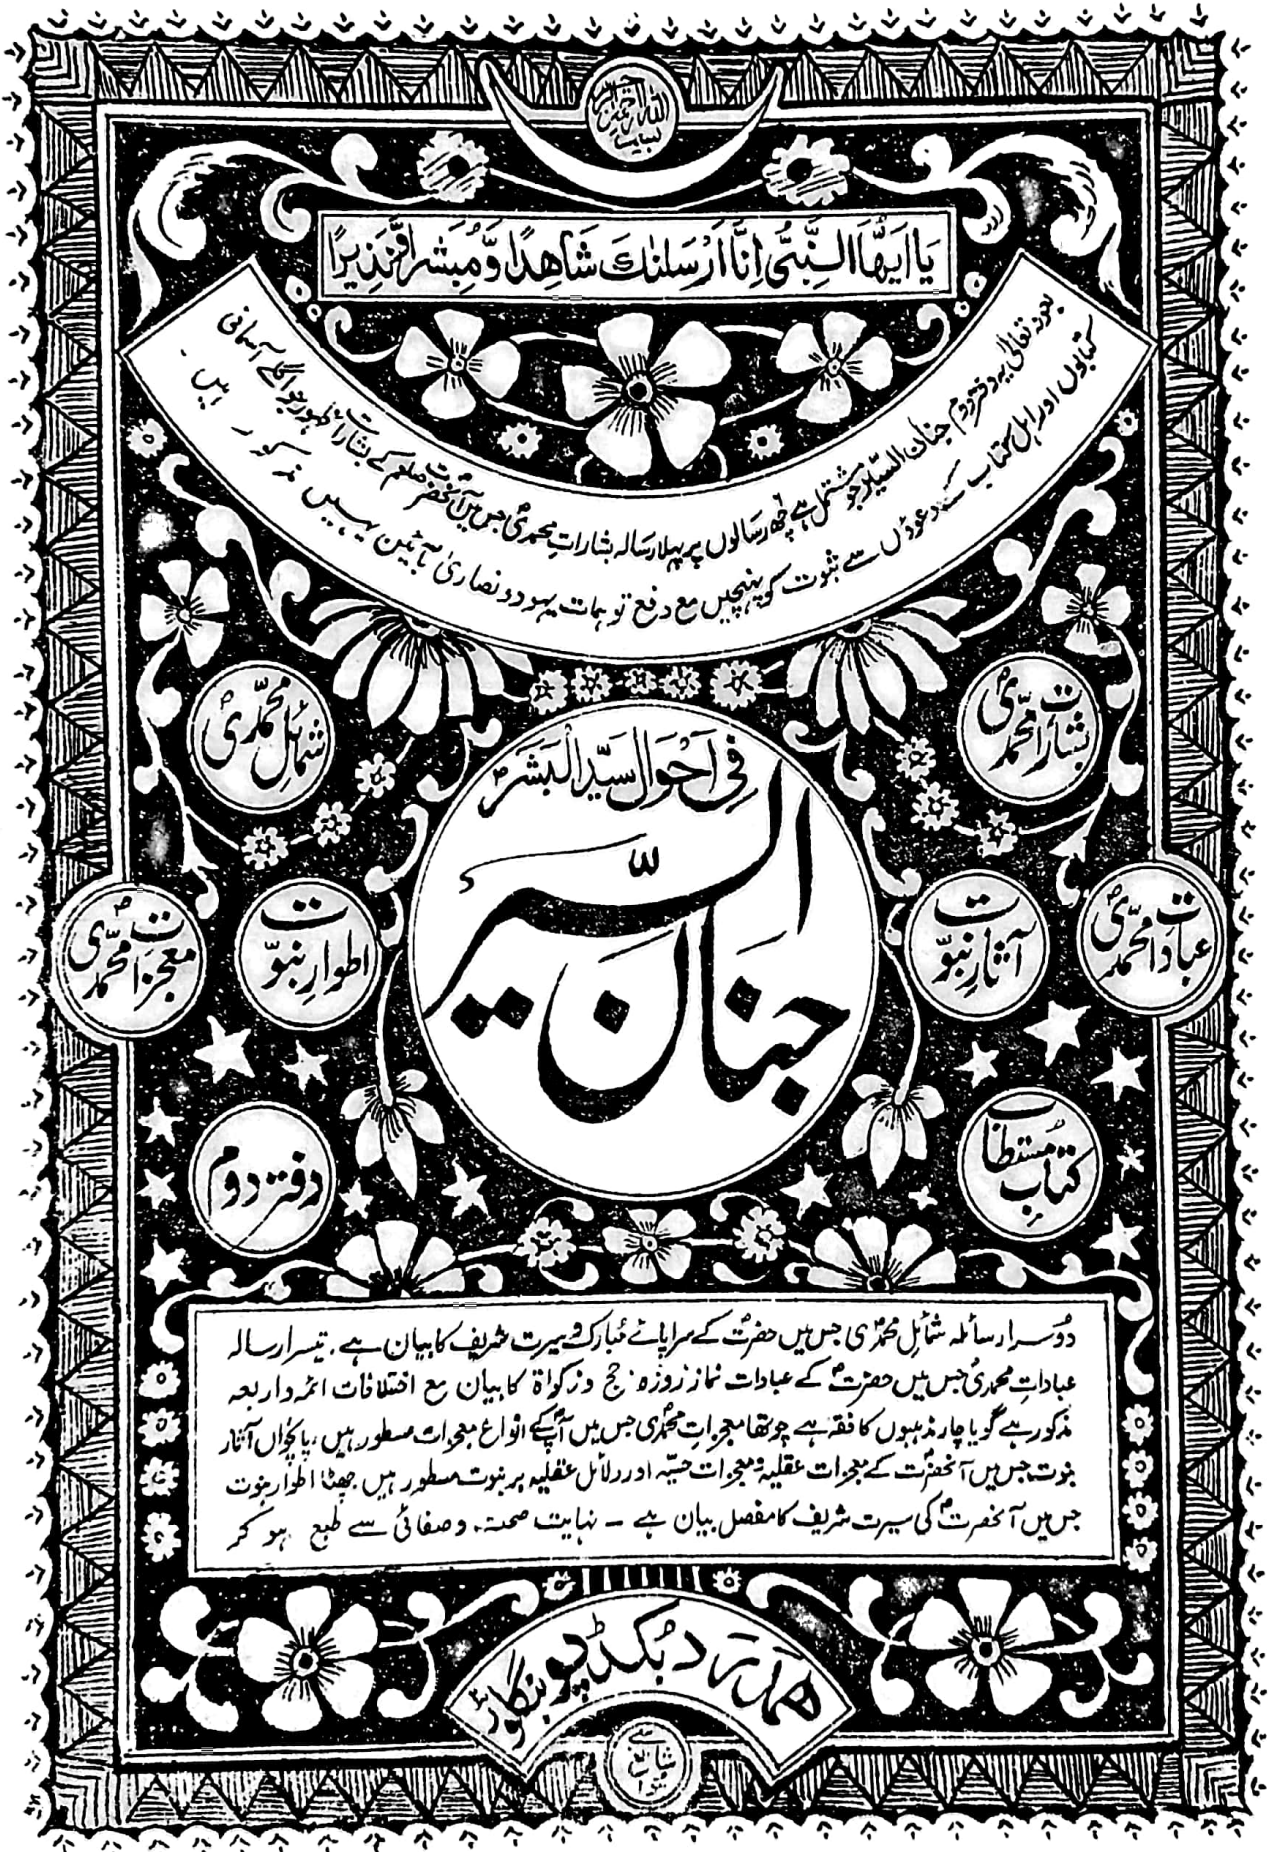 بسم اللہ الرحمن الرحیم
یَا اَیُّهَا النَّبِیُّ اِنَّا اَرْسَلْنٰكَ شَاهِدًا وَّمُبَشِّرًا وَّنَذِیْرًا
بعون تعالیٰ یہ دفتر دوم جنان السیر جو مشتمل ہے چھ رسالوں پر پہلا رسالہ بشارات محمدیؐ جس میں آنحضرت صلعم کے بشارات ظہور جو اگلے آسمانی
کتابوں اور اہل کتاب کے دعوؤں سے ثبوت کو پہنچیں مع دفع توہمات یہود و نصاریٰ بآئین بہیں مذکور ہیں .
بشارات محمدیؐ
شمائل محمدیؐ
فِی اَحْوَالِ سَیِّدِ الْبَشَرِؐ
جنان السِّیَر
عبادات محمدیؐ
آثارِ نبوّت
اطوارِ نبوّت
معجزات محمدیؐ
کتاب مستطاب
دفتر دوم
دوسرا رسالہ شمائل محمدیؐ جس میں حضرتؐ کے سراپائے مبارک و سیرت شریف کا بیان ہے . تیسرا رسالہ
عبادات محمدیؐ جس میں حضرتؐ کے عبادات نماز روزہ حج و زکواة کا بیان مع اختلافات ائمہ اربعہ
مذکور ہے گویا چار مذہبوں کا فقہ ہے چوتھا معجزات محمدیؐ جس میں آپؐ کے انواع معجزات مسطور ہیں ، پانچواں آثار
نبوت جس میں آنحضرتؐ کے معجزات عقلیہ و معجزات حسیّہ اور دلائل عقلیہ پر نبوت مسطور ہیں چھٹا اطوار نبوت
جس میں آنحضرتؐ کی سیرت شریف کا مفصل بیان ہے ۔ نہایت صحت و صفائی سے طبع ہو کر
ھمدرد بکڈپو بنگلور